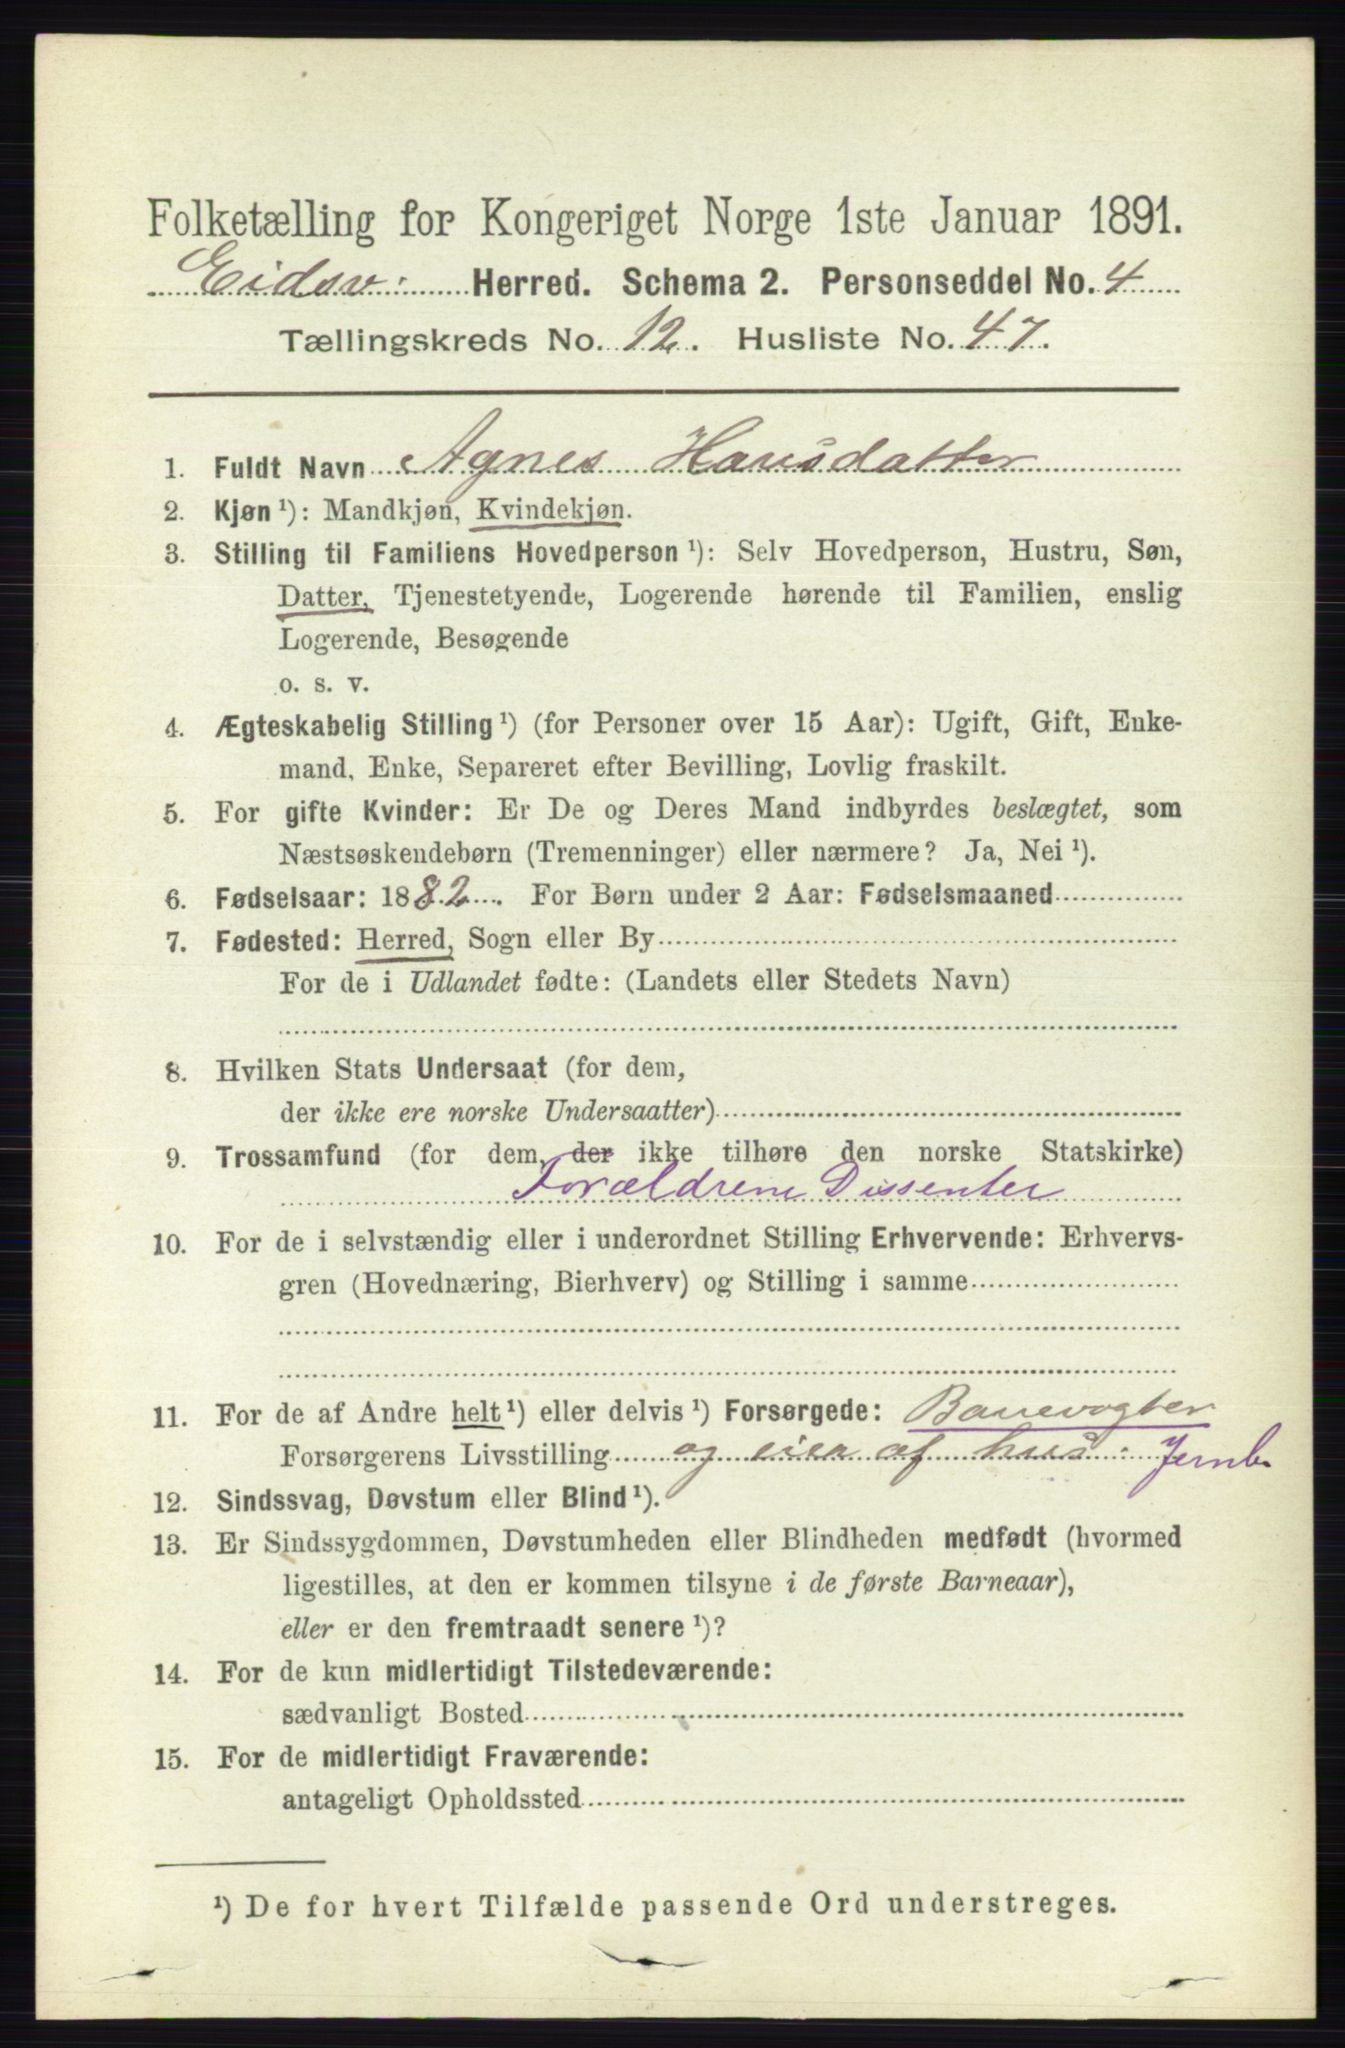 Folketælling for Kongeriget Norge 1ste Januar 1891.
Eidsv: Herred. Schema 2. Personseddel No. 4
Tællingskreds No. 12. Husliste No. 47.
1. Fuldt Navn Agnes Hansdatter
2. Kjøn ¹): Mandkjøn, Kvindekjøn.
3. Stilling til Familiens Hovedperson ¹): Selv Hovedperson, Hustru, Søn,
Datter, Tjenestetyende, Logerende hørende til Familien, enslig
Logerende, Besøgende
o. s. v.
4. Ægteskabelig Stilling ¹) (for Personer over 15 Aar): Ugift, Gift, Enke-
mand, Enke, Separeret efter Bevilling, Lovlig fraskilt.
5. For gifte Kvinder: Er De og Deres Mand indbyrdes beslægtet, som
Næstsøskendebørn (Tremenninger) eller nærmere? Ja, Nei ¹).
6. Fødselsaar: 1882. For Børn under 2 Aar: Fødselsmaaned
7. Fødested: Herred, Sogn eller By
For de i Udlandet fødte: (Landets eller Stedets Navn)
8. Hvilken Stats Undersaat (for dem,
der ikke ere norske Undersaatter)
9. Trossamfund (for dem, der ikke tilhøre den norske Statskirke)
Forældrene Dissenter
10. For de i selvstændig eller i underordnet Stilling Erhvervende: Erhvervs-
gren (Hovednæring, Bierhverv) og Stilling i samme
11. For de af Andre helt ¹) eller delvis ¹) Forsørgede: Banevogter
Forsørgerens Livsstilling og eier af hus: Jernb.
12. Sindssvag, Døvstum eller Blind ¹).
13. Er Sindssygdommen, Døvstumheden eller Blindheden medfødt (hvormed
ligestilles, at den er kommen tilsyne i de første Barneaar),
eller er den fremtraadt senere ¹)?
14. For de kun midlertidigt Tilstedeværende:
sædvanligt Bosted
15. For de midlertidigt Fraværende:
antageligt Opholdssted
¹) De for hvert Tilfælde passende Ord understreges.